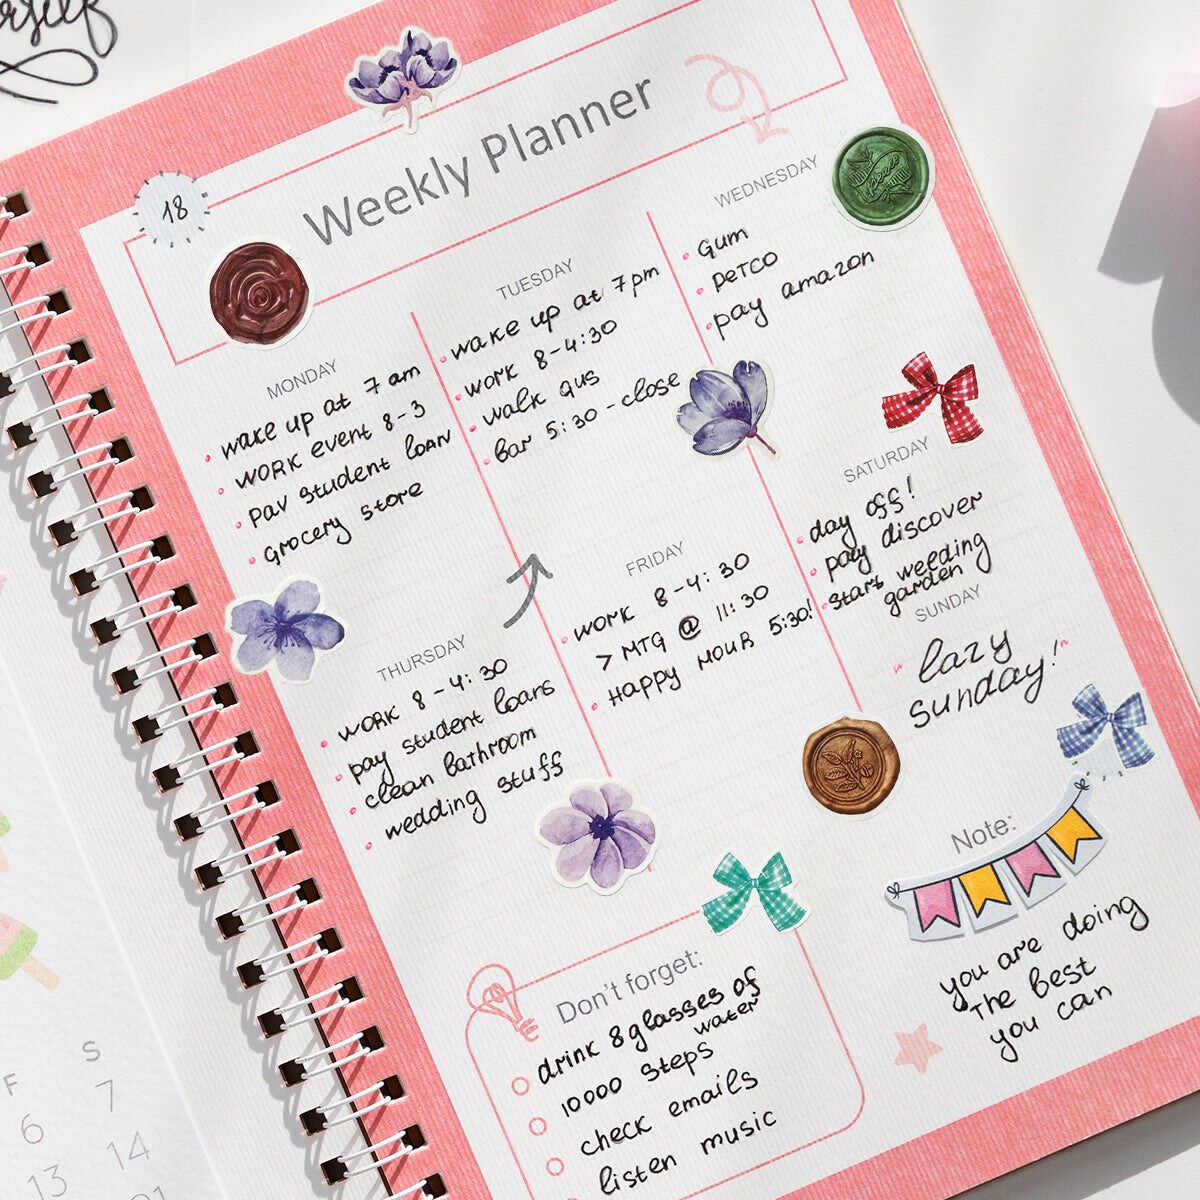 18
Weekly Planner
MONDAY
wake up at 7 am
WORK event 8-3
pay student loan
grocery store
TUESDAY
wake up at 7pm
work 8-4:30
walk gus
bar 5:30-close
WEDNESDAY
Gum
petco
pay amazon
THURSDAY
WORK 8-4:30
pay student loans
clean bathroom
wedding stuff
FRIDAY
WORK 8-4:30
> MTG @ 11:30
HAppy HOUR 5:30!
SATURDAY
day off!
pay discover
start weeding
garden
SUNDAY
lazy
sunday!
Don't forget:
drink 8 glasses of
water
10000 steps
check emails
listen music
Note:
you are doing
The best
you can
F S
6 7
13 14